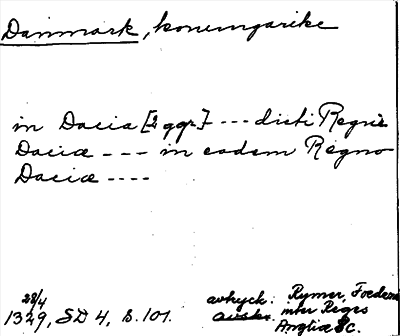 Danmark, konungarike
in Dacia [2 ggr] --- dicti Regni
Daciæ --- in eadem Regno
Daciæ ----
28/4
1329, SD 4, s. 101.
avtryck: Rymer, Foedera
inter Reges
Angliæ &c.